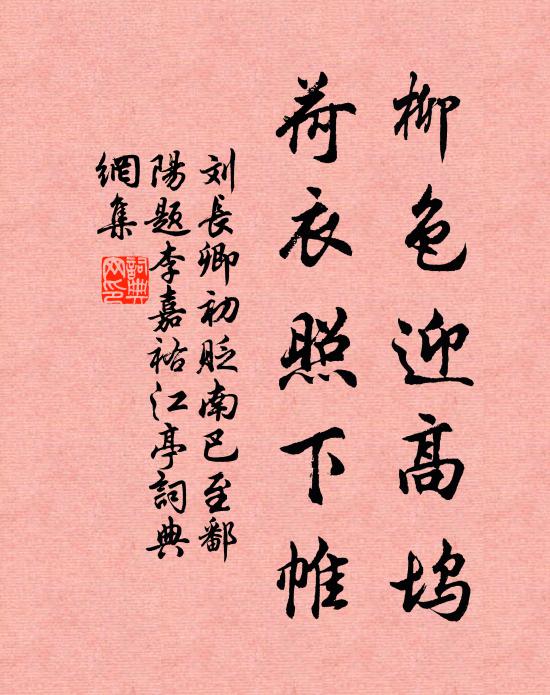 柳色迎高塢
荷衣照下帷
刘長卿初貶南巴至鄱
陽題李嘉祐江亭詞典
網集
詞典網印